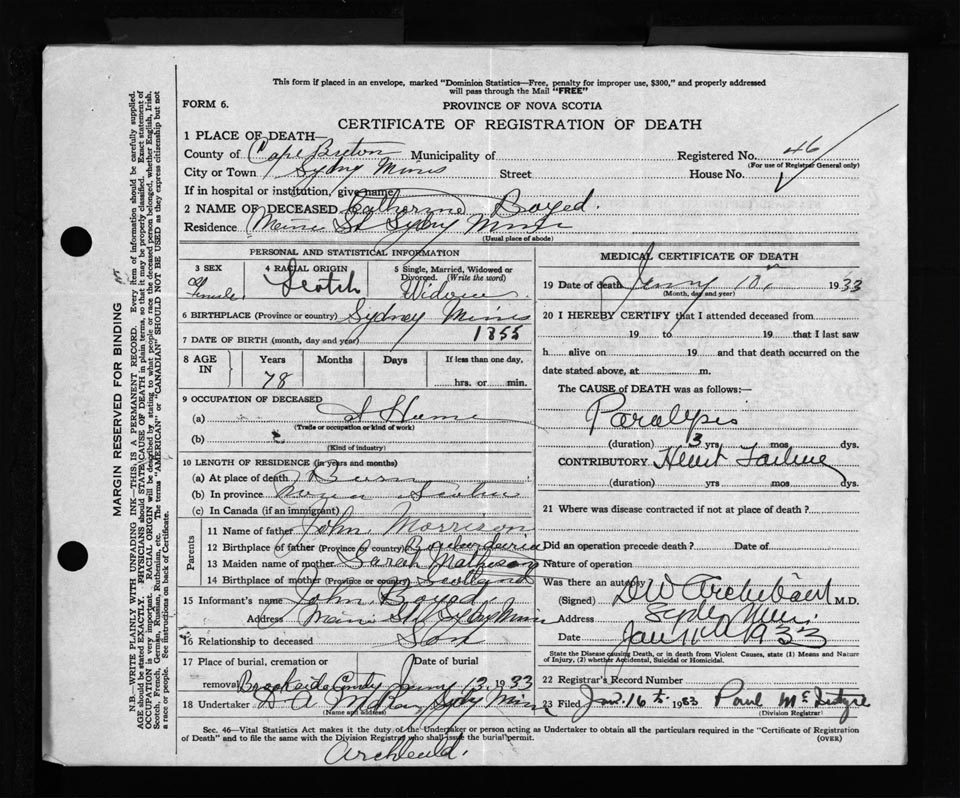 This form if placed in an envelope, marked "Dominion Statistics—Free, penalty for improper use, $300," and properly addressed
will pass through the Mail "FREE"
FORM 6.
PROVINCE OF NOVA SCOTIA
CERTIFICATE OF REGISTRATION OF DEATH
1 PLACE OF DEATH—
County of Cape Breton Municipality of
Registered No. 46
(For use of Registrar General only)
City or Town Sydney Mines Street House No.
If in hospital or institution, give name
2 NAME OF DECEASED Catherine Boyed.
Residence St Sydney Mines
(Usual place of abode)
PERSONAL AND STATISTICAL INFORMATION
3 SEX
Female
4 RACIAL ORIGIN
Scotch
5 Single, Married, Widowed or
Divorced. (Write the word)
Widow
6 BIRTHPLACE (Province or country) Sydney Mines
7 DATE OF BIRTH (month, day and year) 1855
8 AGE
IN
Years
78
Months
Days
If less than one day,
hrs. or min.
9 OCCUPATION OF DECEASED
(a) At Home
(Trade or occupation or kind of work)
(b)
(Kind of industry)
10 LENGTH OF RESIDENCE (in years and months)
(a) At place of death
(b) In province Nova Scotia
(c) In Canada (if an immigrant)
Parents
11 Name of father John Morrison
12 Birthplace of father (Province or country)
13 Maiden name of mother Sarah Matheson
14 Birthplace of mother (Province or country) Scotland
15 Informant's name John Boyed
Address St Sydney Mines
16 Relationship to deceased Son
17 Place of burial, cremation or
removal Brookside
Date of burial
13 1933
18 Undertaker D A
(Name and address)
MEDICAL CERTIFICATE OF DEATH
19 Date of death 10 1933
(Month, day and year)
20 I HEREBY CERTIFY that I attended deceased from
19 to 19 that I last saw
h alive on 19 and that death occurred on the
date stated above, at m.
The CAUSE of DEATH was as follows:—
Paralysis
(duration) 3 yrs mos dys.
CONTRIBUTORY Heart Failure
(duration) yrs mos dys.
21 Where was disease contracted if not at place of death?
Did an operation precede death? Date of
Nature of operation
Was there an autopsy
(Signed) DW Archibald M.D.
Address Sydney Mines
Date Jan 11th 1933
State the Disease causing Death, or in death from Violent Causes, state (1) Means and Nature
of Injury, (2) whether Accidental, Suicidal or Homicidal.
22 Registrar's Record Number
23 Filed Jan. 16th 1933 Paul
(Division Registrar)
Sec. 46—Vital Statistics Act makes it the duty of the Undertaker or person acting as Undertaker to obtain all the particulars required in the "Certificate of Registration
of Death" and to file the same with the Division Registrar who shall issue the burial permit.
(OVER)
Archibald.
MARGIN RESERVED FOR BINDING
N.B.—WRITE PLAINLY WITH UNFADING INK—THIS IS A PERMANENT RECORD. Every item of information should be carefully supplied.
AGE should be stated EXACTLY. PHYSICIANS should STATE CAUSE OF DEATH in plain terms, so that it may be properly classified. Exact statement of
OCCUPATION is very important. RACIAL ORIGIN will be described by stating to what people or race the deceased person belonged, whether English, Irish,
Scotch, French, German, Russian, Ruthenian, etc. The terms "AMERICAN" or "CANADIAN" SHOULD NOT BE USED as they express citizenship but not
a race or people. See instructions on back of Certificate.